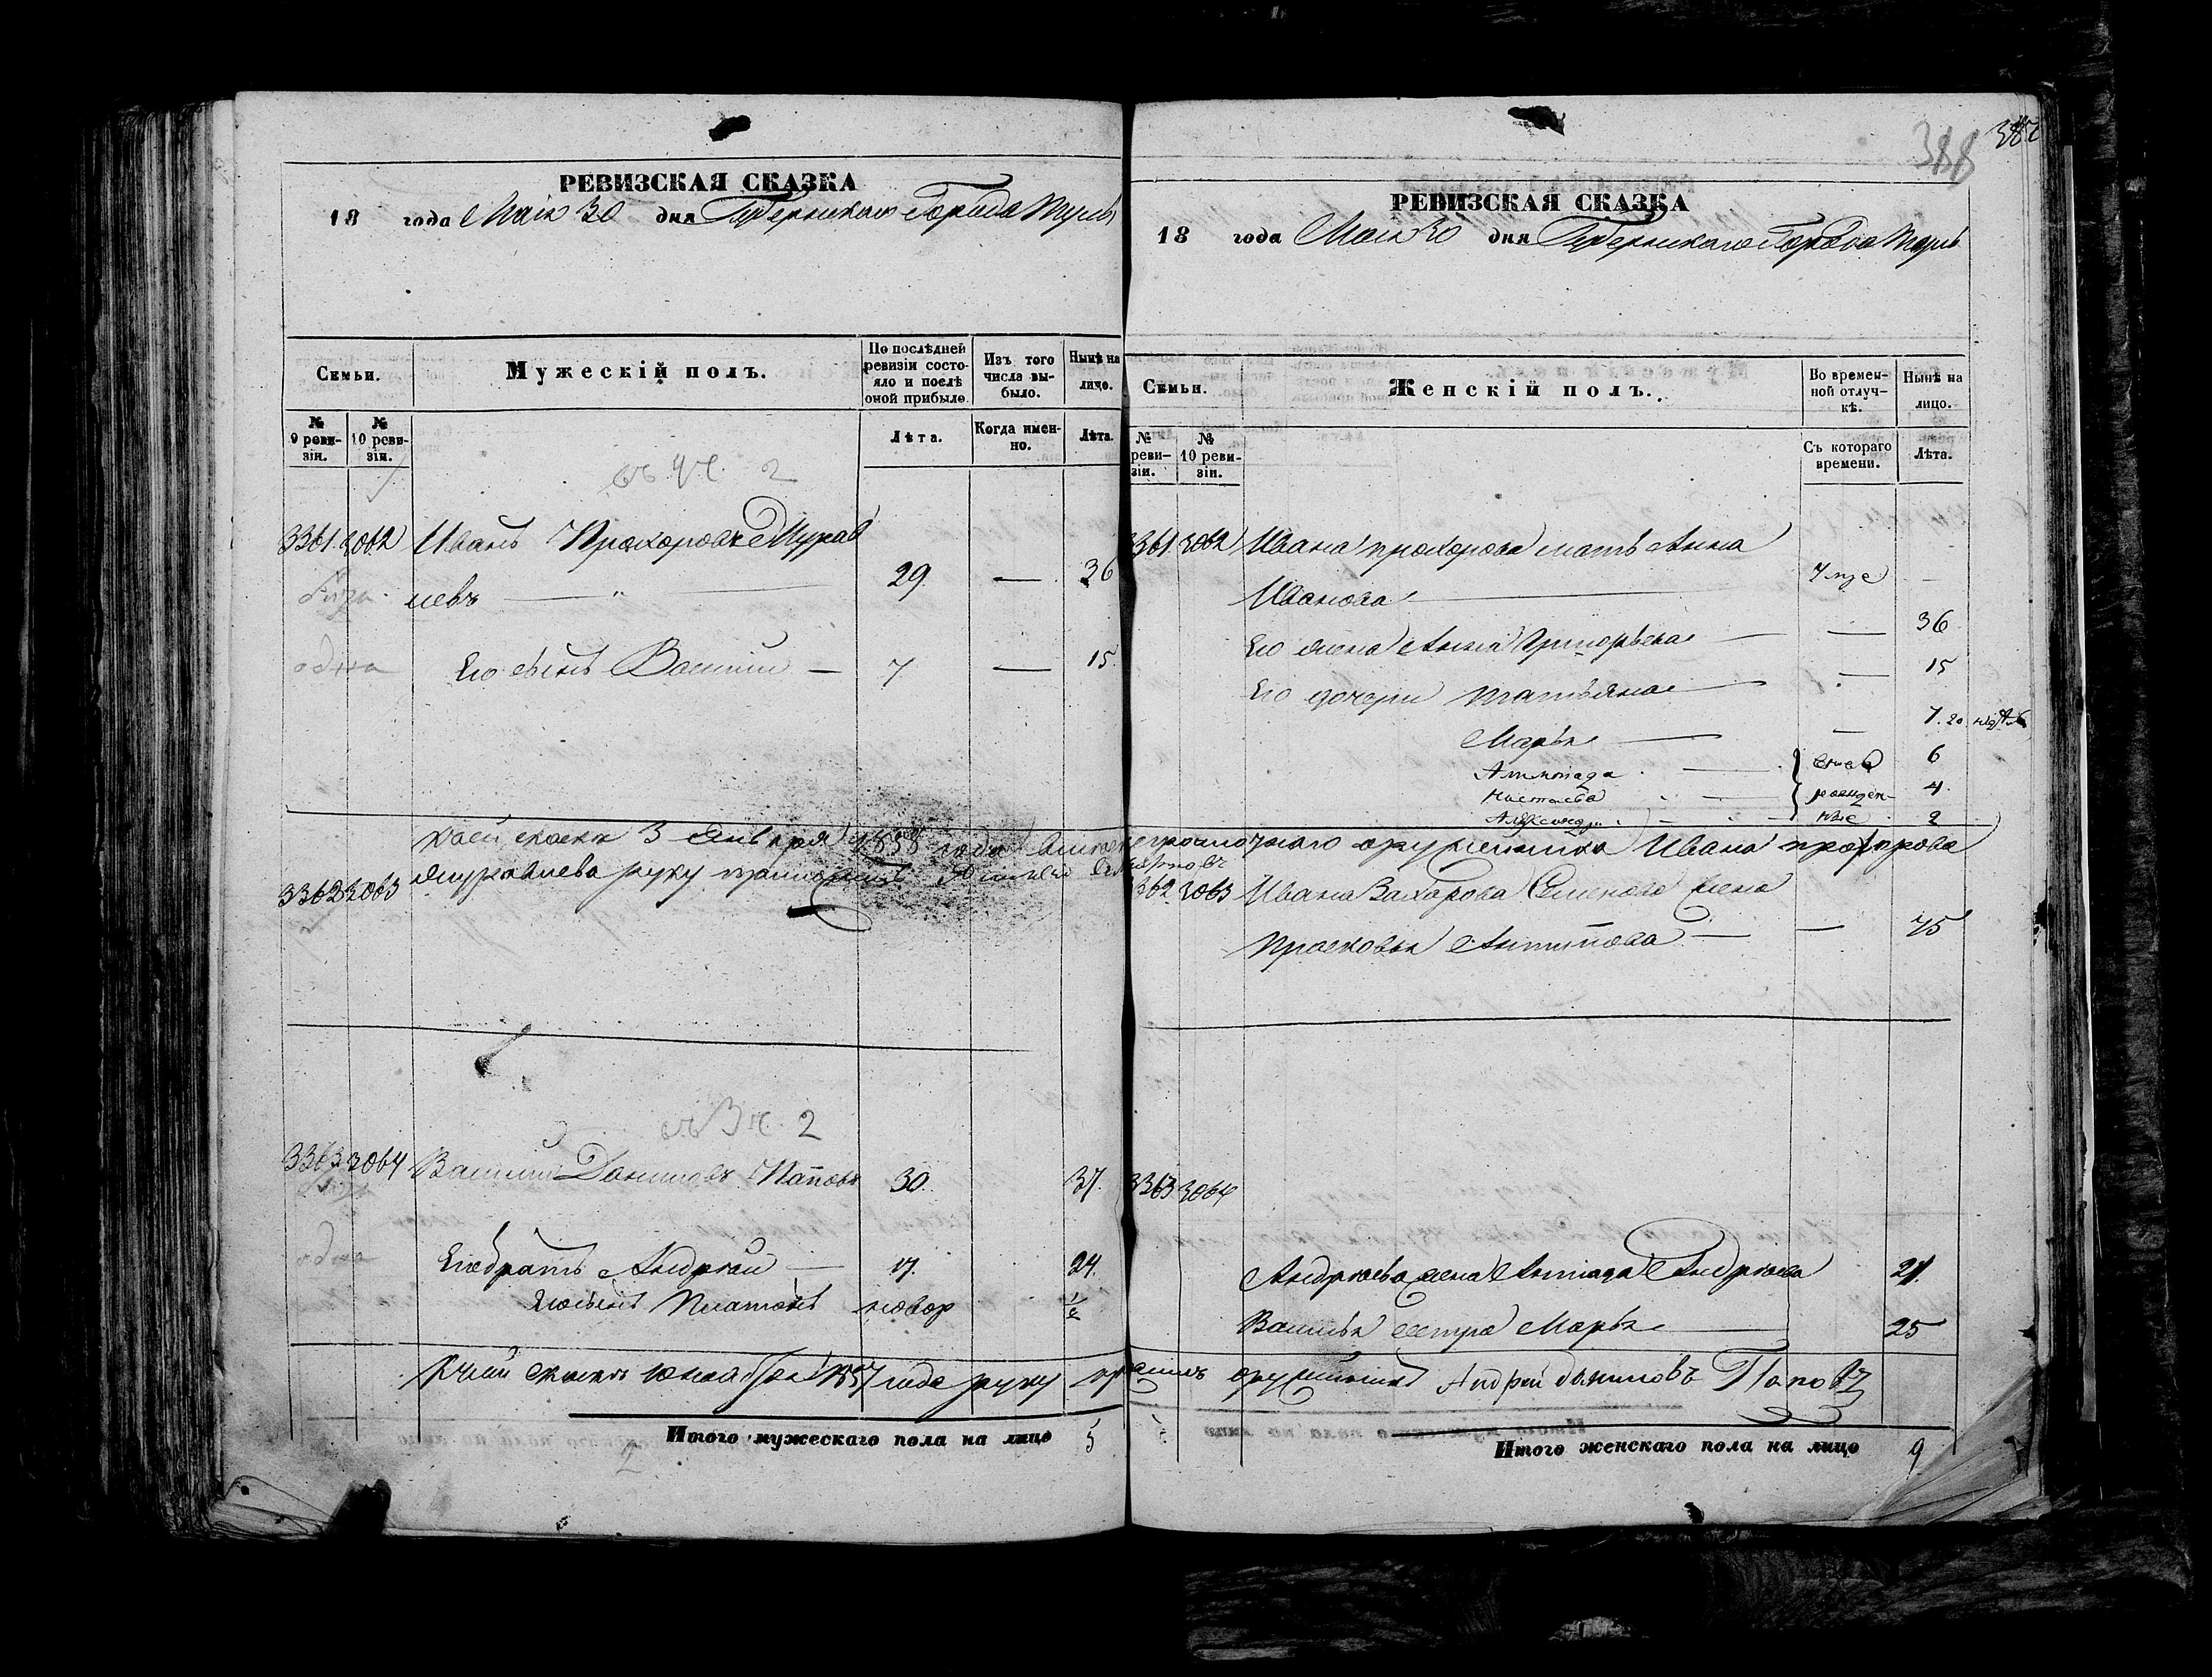 РЕВИЗСКАЯ СКАЗКА
18 года Маія 30 дня Губернскаго Города Тулы
Семьи.
Мужескій полъ.
По послѣдней ревизіи состояло и послѣ оной прибыло.
Изъ того числа выбыло.
Нынѣ на лицо.
№ 9 ревизіи.
№ 10 ревизіи.
Лѣта.
Когда именно.
Лѣта.
2
3361 3062 Иванъ Прохоровъ Мурав
евъ — 29. — 36
одна Его сынъ Василій — 7 — 15.
3362 3063
2
3363 3064 Василій Даниловъ Паповъ 30. 37.
одна Его братъ Андрей — 17. 24.
Его сынъ Платонъ новор
Итого мужескаго пола на лицо 5
2
388
РЕВИЗСКАЯ СКАЗКА
18 года Маія 30 дня Губернскаго Города Тулы
Семьи.
Женскій полъ.
Во временной отлучкѣ.
Нынѣ на лицо.
№ реви-зіи.
№ 10 ревизіи.
Съ котораго времени.
Лѣта.
3361 3062 Ивана Прохорова мать Анна
Иванова —
Его жена Анна Григорьева — — 36
Его дочери Татьяна — — 15
Марья — — 7.
6
Настасья — 4.
Александра — 2
К сей сказкѣ 3 Января 1858 года вмѣсто неграмотнаго оружейника Ивана Прохорова
Муравьева руку приложилъ
3362 3063 Ивана Захарова Семенова жена
Прасковья Антипова — — 75
3363 3064
Андреева жена Андреева 21.
Василья сестра Марья — 25
К сей сказкѣ 1857 года руку оружейникъ Андрей Даниловъ Паповъ
Итого женскаго пола на лицо 9